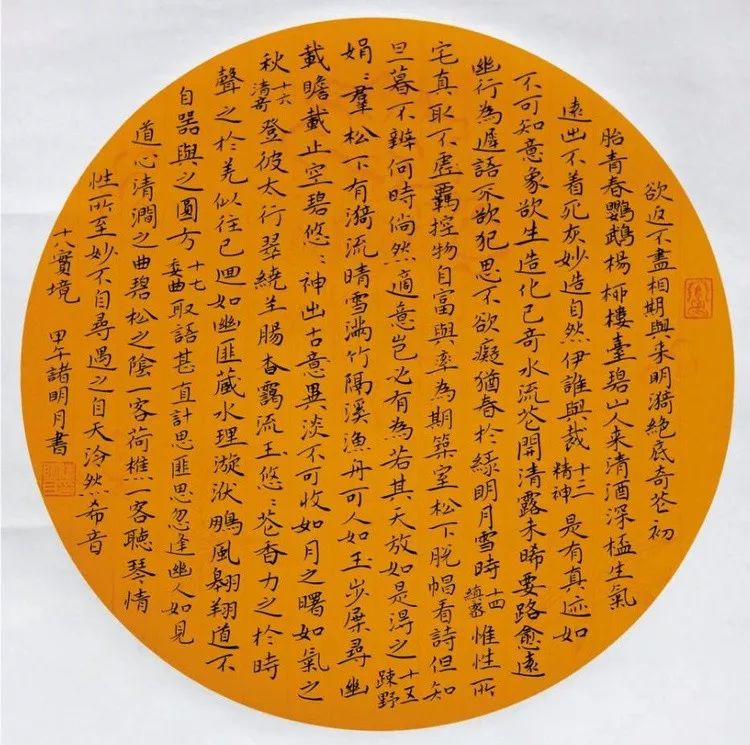 欲返不盡相期與来明漪絶底奇花初
胎青春鸚鵡楊柳樓臺碧山人来清酒深楹生氣
遠出不着死灰妙造自然伊誰與裁十三精神是有真迹如
不可知意象欲生造化已奇水流花開清露未晞要路愈遠
幽行為遲語不欲犯思不欲癡猶春於緑明月雪時十四縝密惟性所
宅真取不虛羈控物自富與率為期築室松下脱帽看詩但知
旦暮不辨何時倘然適意豈必有為若其天放如是淂之十五踈野
娟〻羣松下有漪流晴雪滿竹隔溪漁舟可人如玉步屧尋幽
載瞻載止空碧悠〻神出古意異淡不可收如月之曙如氣之
秋十六清奇登彼太行翠繞羊腸杳靄流玉悠〻花香力之於時
聲之於羌似往已迴如幽匪藏水理漩洑鵬風翱翔道不
自器與之圓方十七委曲取語甚直計思匪思忽逢幽人如見
道心清澗之曲碧松之陰一客荷樵一客聽琴情
性所至妙不自尋遇之自天泠然希音
十八實境 甲午諸明月書